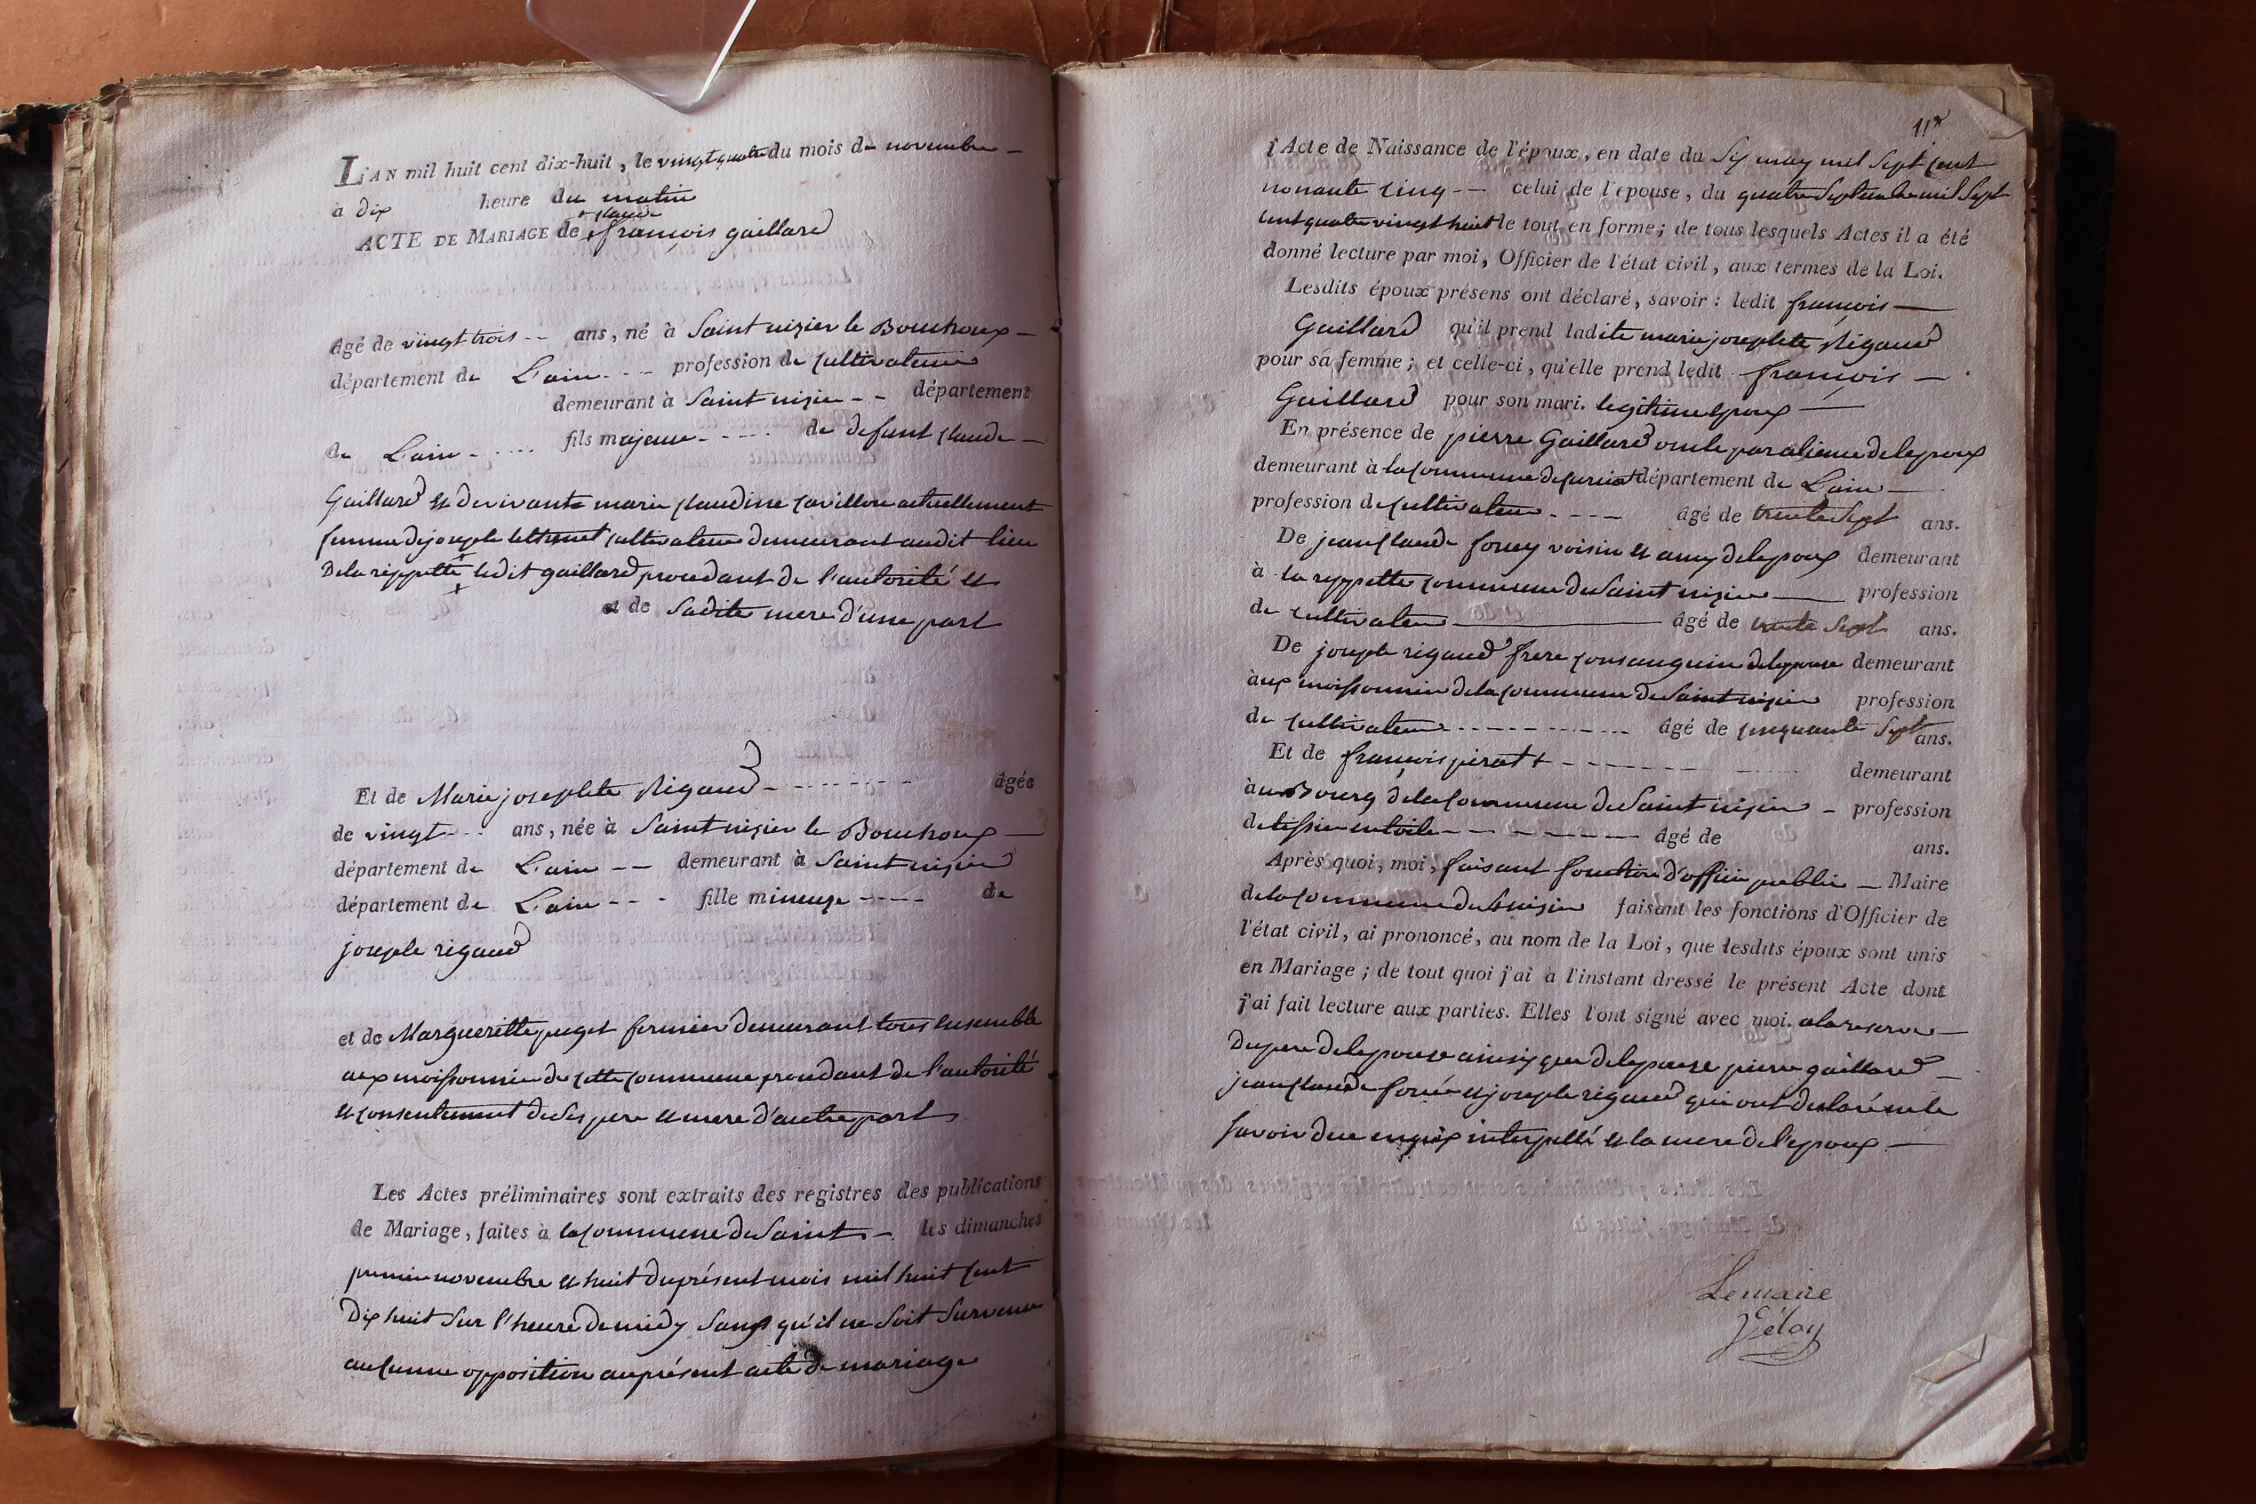 L'AN mil huit cent dix-huit, le vingt quatre du mois de novembre
à dix heure du matin
claude
ACTE DE MARIAGE de françois gaillard
âgé de vingt trois ans, né à Saint nizier le Bouchoux
département de L'ain profession de cultivateur
demeurant à Saint nizier département
de L'ain fils majeur de defunt claude
Gaillard et de vivante marie claudine cavillon actuellement
femme de joseph cultivateur demeurant audit lieu
De la rippette ledit gaillard procedant de l'autorité et
et de Sadite mere d'une part
Et de Marie josephte Rigaud âgée
de vingt ans, née à Saint nizier le Bouchoux
département de L'ain demeurant à Saint nizier
département de L'ain fille mineure de
joseph rigaud
et de Margueritte puget fermier demeurant tous ensemble
aux moissonnier de cette commune procedant de l'autorité
et consentement de Ses pere et mere d'autre part
Les Actes préliminaires sont extraits des registres des publications
de Mariage, faites à la commune de Saint les dimanches
premier novembre et huit du présent mois mil huit cent
Dix huit Sur l'heure de midy Sans qu'il ne Soit Survenu
aucunne opposition au présent acte de mariage
11
l'Acte de Naissance de l'époux, en date du Six may mil Sept cent
nonante cinq celui de l'épouse, du quatre Septembre mil Sept
cent quatre vingt huit le tout en forme; de tous lesquels Actes il a été
donné lecture par moi, Officier de l'état civil, aux termes de la Loi.
Lesdits époux présens ont déclaré, savoir: ledit françois
Gaillard qu'il prend ladite marie josephte Rigaud
pour sa femme; et celle-ci, qu'elle prend ledit françois
Gaillard pour son mari. legitime epoux
En présence de pierre Gaillard oncle par aliance de lepoux
demeurant à la commune de curciat département de L'ain
profession de cultivateur âgé de trente Sept ans.
De jean claude foray voisin et amy de lepoux demeurant
à la rippette commune de Saint nizier profession
de cultivateur âgé de trente Sept ans.
De joseph rigaud frere consanguin de lepouse demeurant
aux moissonnier de la commune de Saint nizier profession
de cultivateur âgé de cinquante Sept ans.
Et de françois demeurant
au Bourg de la commune de Saint nizier profession
de tissier en toile âgé de ans.
Après quoi, moi, faisant fonction d'officier public Maire
de la commune de St nizier faisant les fonctions d'Officier de
l'état civil, ai prononcé, au nom de la Loi, que lesdits époux sont unis
en Mariage; de tout quoi j'ai à l'instant dressé le présent Acte dont
j'ai fait lecture aux parties. Elles l'ont signé avec moi. a la reserve
Du pere de lepouse ainsi que de lepouse pierre gaillard
jean claude et joseph rigaud qui ont declaré ne le
Savoir de ce enquis interpellé et la mere de l'epoux
Lemaire
Velay